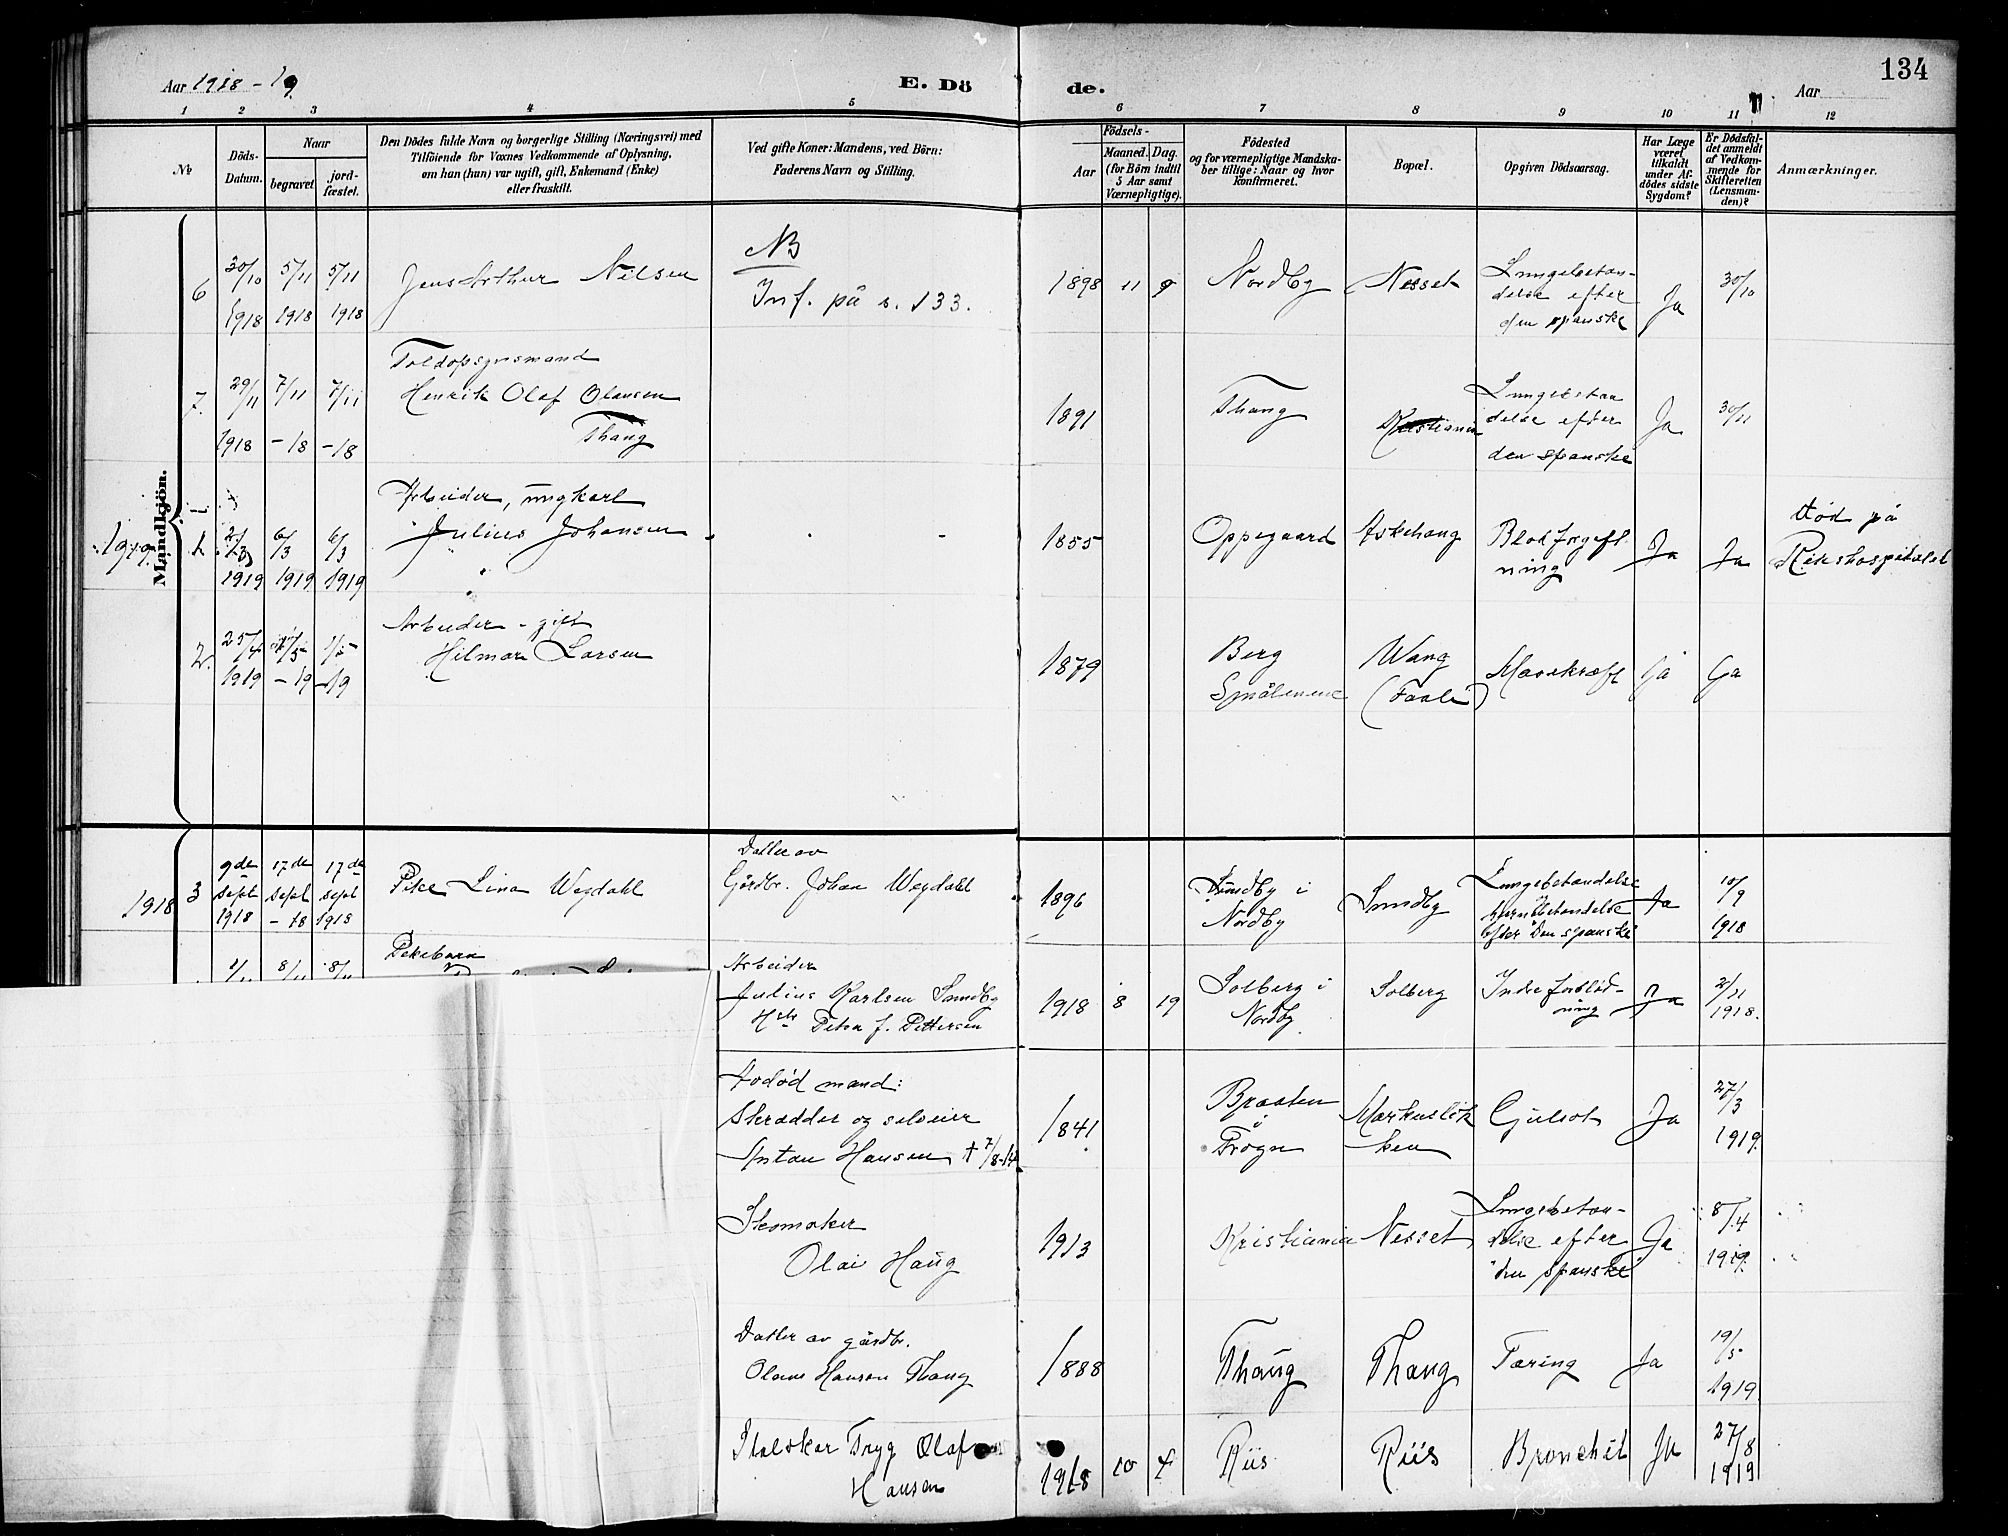 Aar 1918-19
E. Dö
de.
134
Aar
1 2 3 4 5 6 7 8 9 10 11 12
No
Döds-Datum.
Naar
begravet.
jord-fæstet.
Den Dödes fulde Navn og borgerlige Stilling (Næringsvei) med
Tilföiende for Voxnes Vedkommende af Oplysning,
om han (hun) var ugift, gift, Enkemand (Enke)
eller fraskilt.
Ved gifte Koner: Mandens, ved Börn:
Faderens Navn og Stilling.
Födsels-
Aar
Maaned. Dag.
(for Börn indtil
5 Aar samt
Værnepligtige).
Födested
og for værnepligtige Mandska-
ber tillige: Naar og hvor
konfirmeret.
Bopæl.
Opgiven Dödsaarsag.
Har Læge
været
tilkaldt
under Af-
dödes sidste
Sygdom?
Er Dödsfal-
det anmeldt
af Vedkom-
mende for
Skifteretten
(Lensman-
den)?
Anmærkninger.
Mandkjön.
6 30/10 1918 5/11 1918 5/11 1918
Jens Arthur Nilsen
NB
Inf. på s. 133.
1898 11 9 Nordby Nesset
Lungebetæn-
delse efter
den spanske
Ja 30/10
7. 29/11 1918 7/11 -18 7/11 -18
Toldopsynsmand
Henrik Olaf Olausen
Thaug
1891 Thaug Kristiania
Lungebetæn
delse efter
den spanske
Ja 30/11
1919.
1. 2/3 1919 6/3 1919 6/3 1919
Arbeider, ungkarl
Julius Johansen
1855 Oppegaard Askehaug
Blodforgeft-
ning
Ja Ja
Död på
Rikshospitalet
2. 25/4 1919 1/5 -19 1/5 -19
Arbeider - gift
Hilmar Larsen
1879
Berg
Smålenene
Wang
(Faale)
Mavekræft Ja Ja
1918 3
9de sept 1918 17de sept -18 17de sept 1918
Pike Lina Wegdahl
Datter av
Gårdbr. Johan Wegdahl
1896
Sundby i
Nordby
Sundby
Lungebetændelse
Hjernebetændelse
efter "Den spanske"
Ja 10/9 1918
1/11 8/11 8/11
Pikebarn
Arbeider
Julius Karlsen Sundby
Hstr Petra J. Pettersen
1918 8 19
Solberg i
Nordby.
Solberg
Indre forblød-
ning
Ja 2/11 1918.
Avdöd mand:
Skrædder og selveier
Antan Hansen † 7/8-14
1841.
Braaten
i
Frogn
Markuslök
ken
Gulsot Ja 27/3 1919.
Skomaker
Olai Haug
1913 Kristiania Nesset
Lungebetæn-
delse efter
"den spanske"
Ja 8/4 1919.
Datter av gårdbr.
Olaus Hansen Thaug
1888 Thaug Thaug Tæring Ja 19/5 1919.
Stalskar Tryg Olaf
Hansen
1918 10 4 Riis Riis Bronchit Ja 27/8 1919